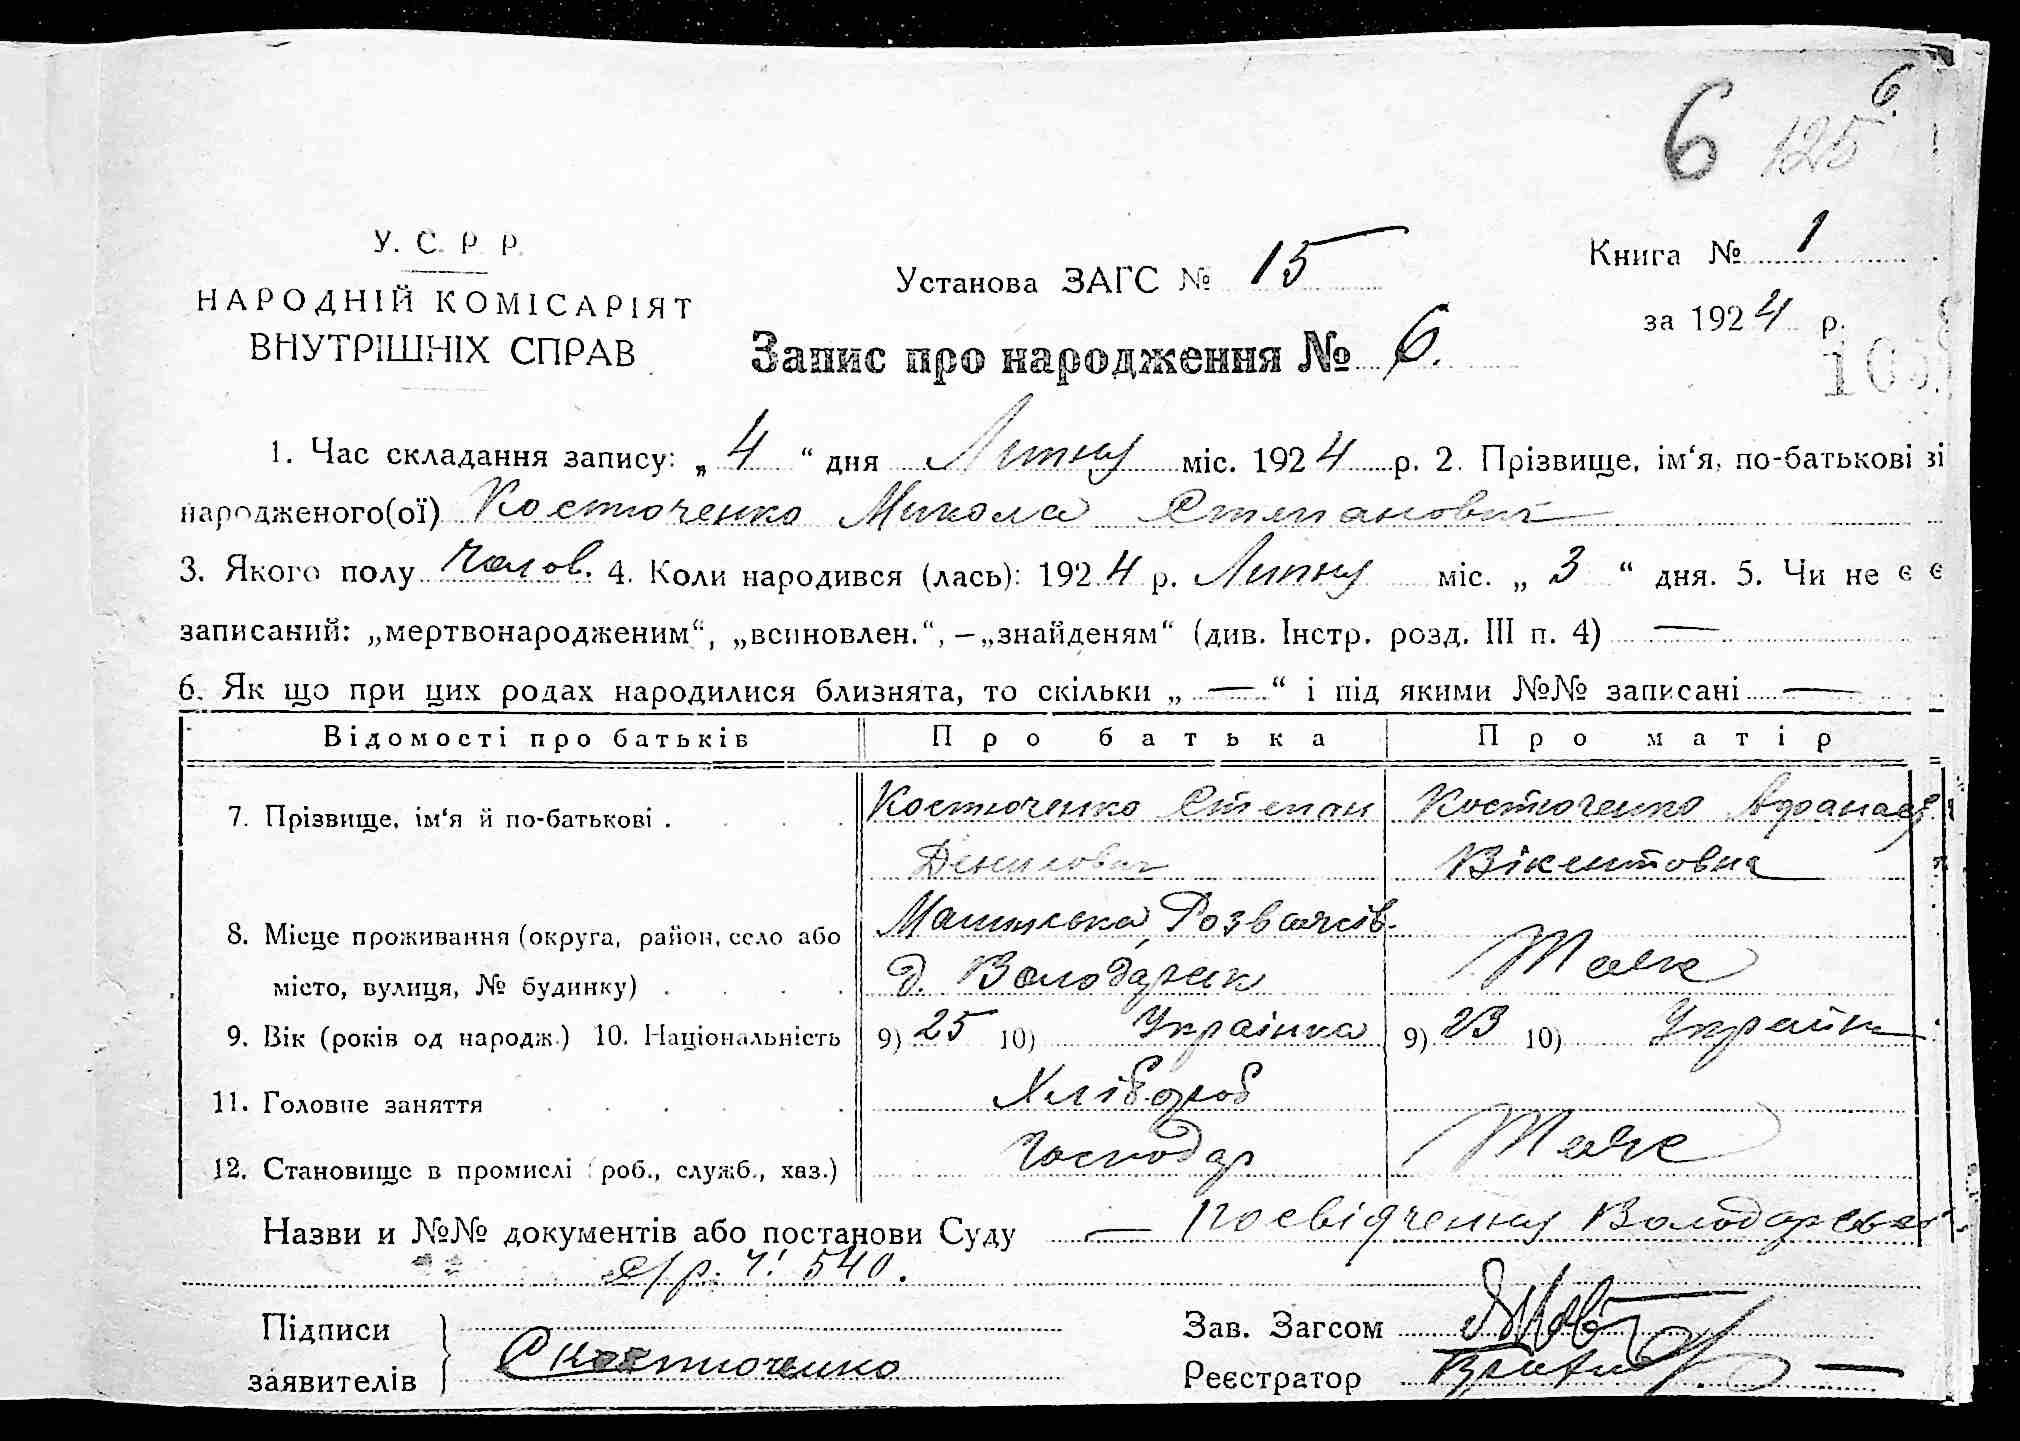 6
6.
125
У. С. Р. Р.
НАРОДНІЙ КОМІСАРІЯТ
ВНУТРІШНІХ СПРАВ
Установа ЗАГС № 15
Книга № 1
за 1924 р.
Запис про народження № 6.
1. Час складання запису: „ 4 “ дня Липня міс. 1924 р. 2. Прізвище, ім‘я, по-батькові
народженого(ої) Костюченко Микола Степанович
3. Якого полу чолов. 4. Коли народився (лась): 1924 р. Липня міс. „ 3 “ дня. 5. Чи не є
записаний: „мертвонародженим“, „всиновлен.“, – „знайденям“ (див. Інстр. розд. III п. 4) —
6. Як що при цих родах народилися близнята, то скільки „ — “ і під якими №№ записані —
Відомості про батьків Про батька Про матір
7. Прізвище, ім‘я й по-батькові . Костюченко Степан Костюченко
Вікентовна
8. Місце проживання (округа, район, село або
місто, вулиця, № будинку) . д. Володарськ
9. Вік (років од народж.) 10. Національність 9) 25 10) Українка 9) 23 10)
11. Головне заняття Хлібороб
12. Становище в промислі (роб., служб., хаз.) Господар
Назви и №№ документів або постанови Суду — Посвідчення
с/р. ч. 540.
Підписи
заявителів С Костюченко
Зав. Загсом
Реєстратор